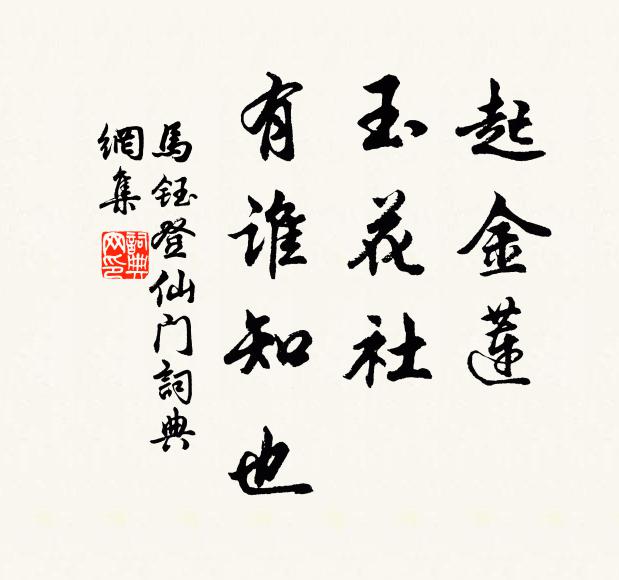 起金蓮
玉花社
有誰知也
馬鈺登仙门詞典
網集
詞典
网印